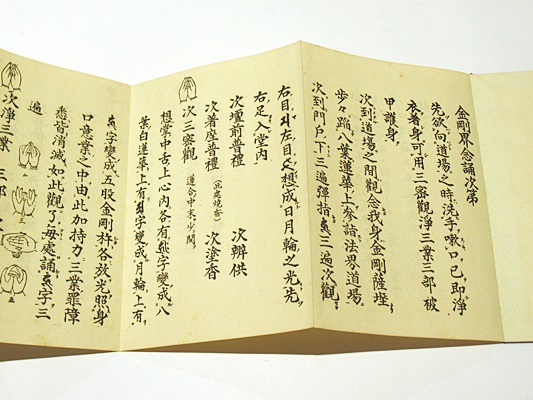 金剛界念誦次第
先欲向道場之時洗手嗽口已即淨
衣着身可用三密觀淨三業三部被
甲護身
次到道場之間觀念我身金剛薩埵
歩々蹈八葉蓮華上參詣法界道場
次到門戸下三遍彈指 三遍次觀
右目 左目 想成日月輪之光先
右足入堂内
次壇前普禮 次辨供
次着座普禮 次塗香
次三密觀 蓮合中末少開
想掌中舌上心内各有 字變成八
葉白蓮華上有 字變成月輪上有
字變成五股金剛杵各放光照身
口意業之中由此加持力三業罪障
悉皆消滅如此觀了毎處誦 字三
遍
次淨三業 三部